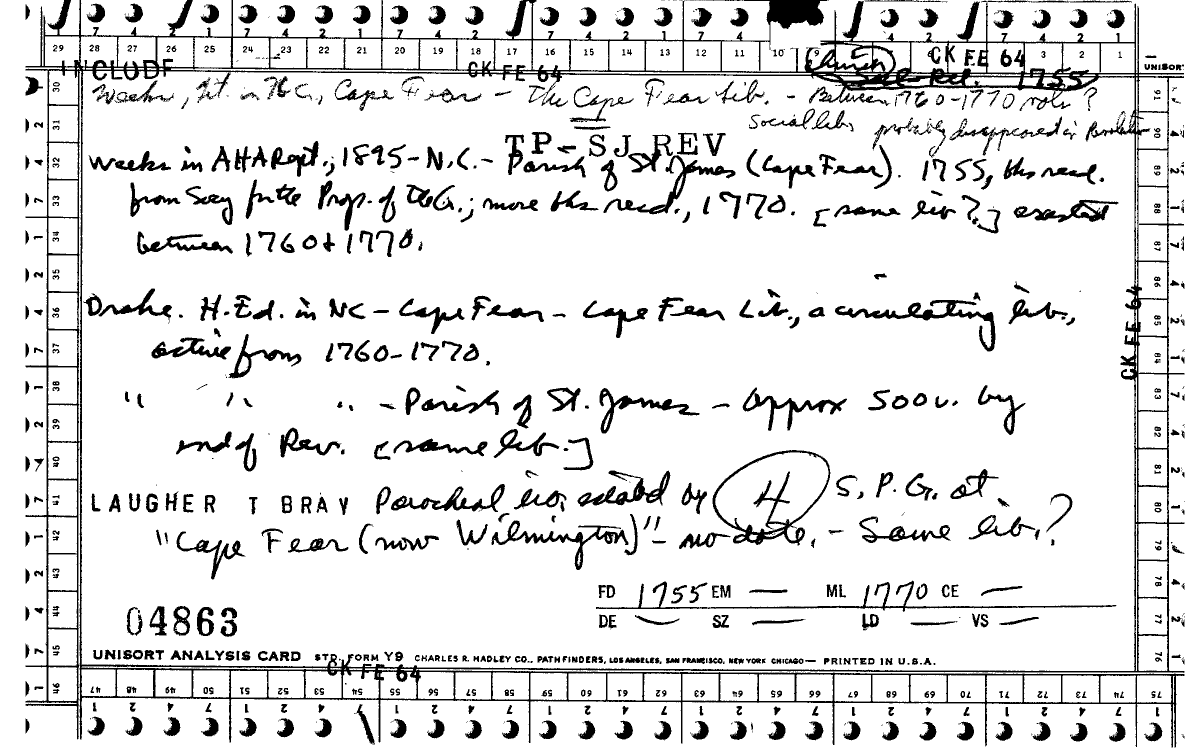 7 4 2 1 7 4 2 1 7 4 2 1 7 4 2 1 7 4 2 1 7 4 2 1
29 28 27 26 25 24 23 22 21 20 19 18 17 16 15 14 13 12 11 10 9 3 2 1
Church CK FE 64
INCLUDE CK FE 64 1755 UNISORT
Weeks, in N.C., Cape Fear – The Cape Fear Lib. – Between 1760–1770 ?
Social lib, probably disappeared in Revolution
TP – SJ REV
Weeks in AHA Rept., 1895 – N.C. – Parish of St. James (Cape Fear). 1755, bks recd.
from Socy for the Prop. of the G.; more bks recd., 1770. [same lib?] existed
between 1760 & 1770.
Drake. H. Ed. in NC – Cape Fear – Cape Fear Lib., a circulating lib.,
active from 1760–1770.
" " " – Parish of St. James – Approx 500 v. by
end of Rev. [same lib.]
LAUGHER T BRAY Parochial lib. estabd by S.P.G. at
"Cape Fear (now Wilmington)" – no date. – Same lib.?
FD 1755 EM — ML 1770 CE —
DE — SZ — LD — VS —
04863
UNISORT ANALYSIS CARD STD. FORM Y9 CHARLES R. HADLEY CO., PATHFINDERS, LOS ANGELES, SAN FRANCISCO, NEW YORK CHICAGO — PRINTED IN U.S.A.
CK FE 64
CK FE 64
47 48 49 50 51 52 53 54 55 56 57 58 59 60 61 62 63 64 65 66 67 68 69 70 71 72 73 74 75